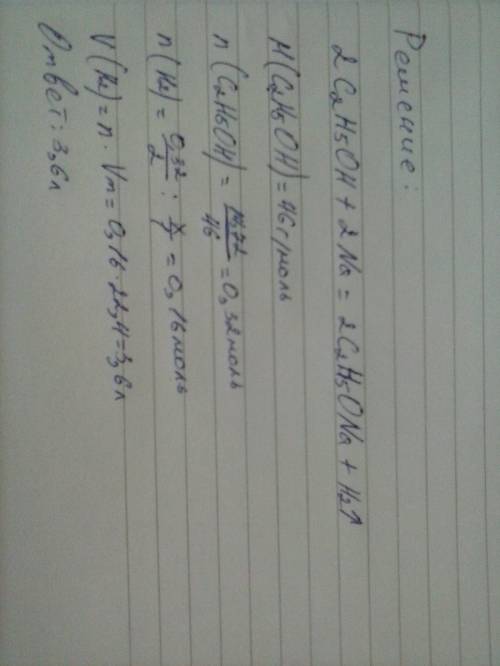 Решение:
2C2H5OH + 2Na = 2C2H5ONa + H2↑
M(C2H5OH)=46г/моль
n(C2H5OH) = 14,72/46 = 0,32моль
n(H2) = 0,32/2 : = 0,16моль
V(H2)=n· Vm=0,16·22,4=3,6л
Ответ: 3,6л